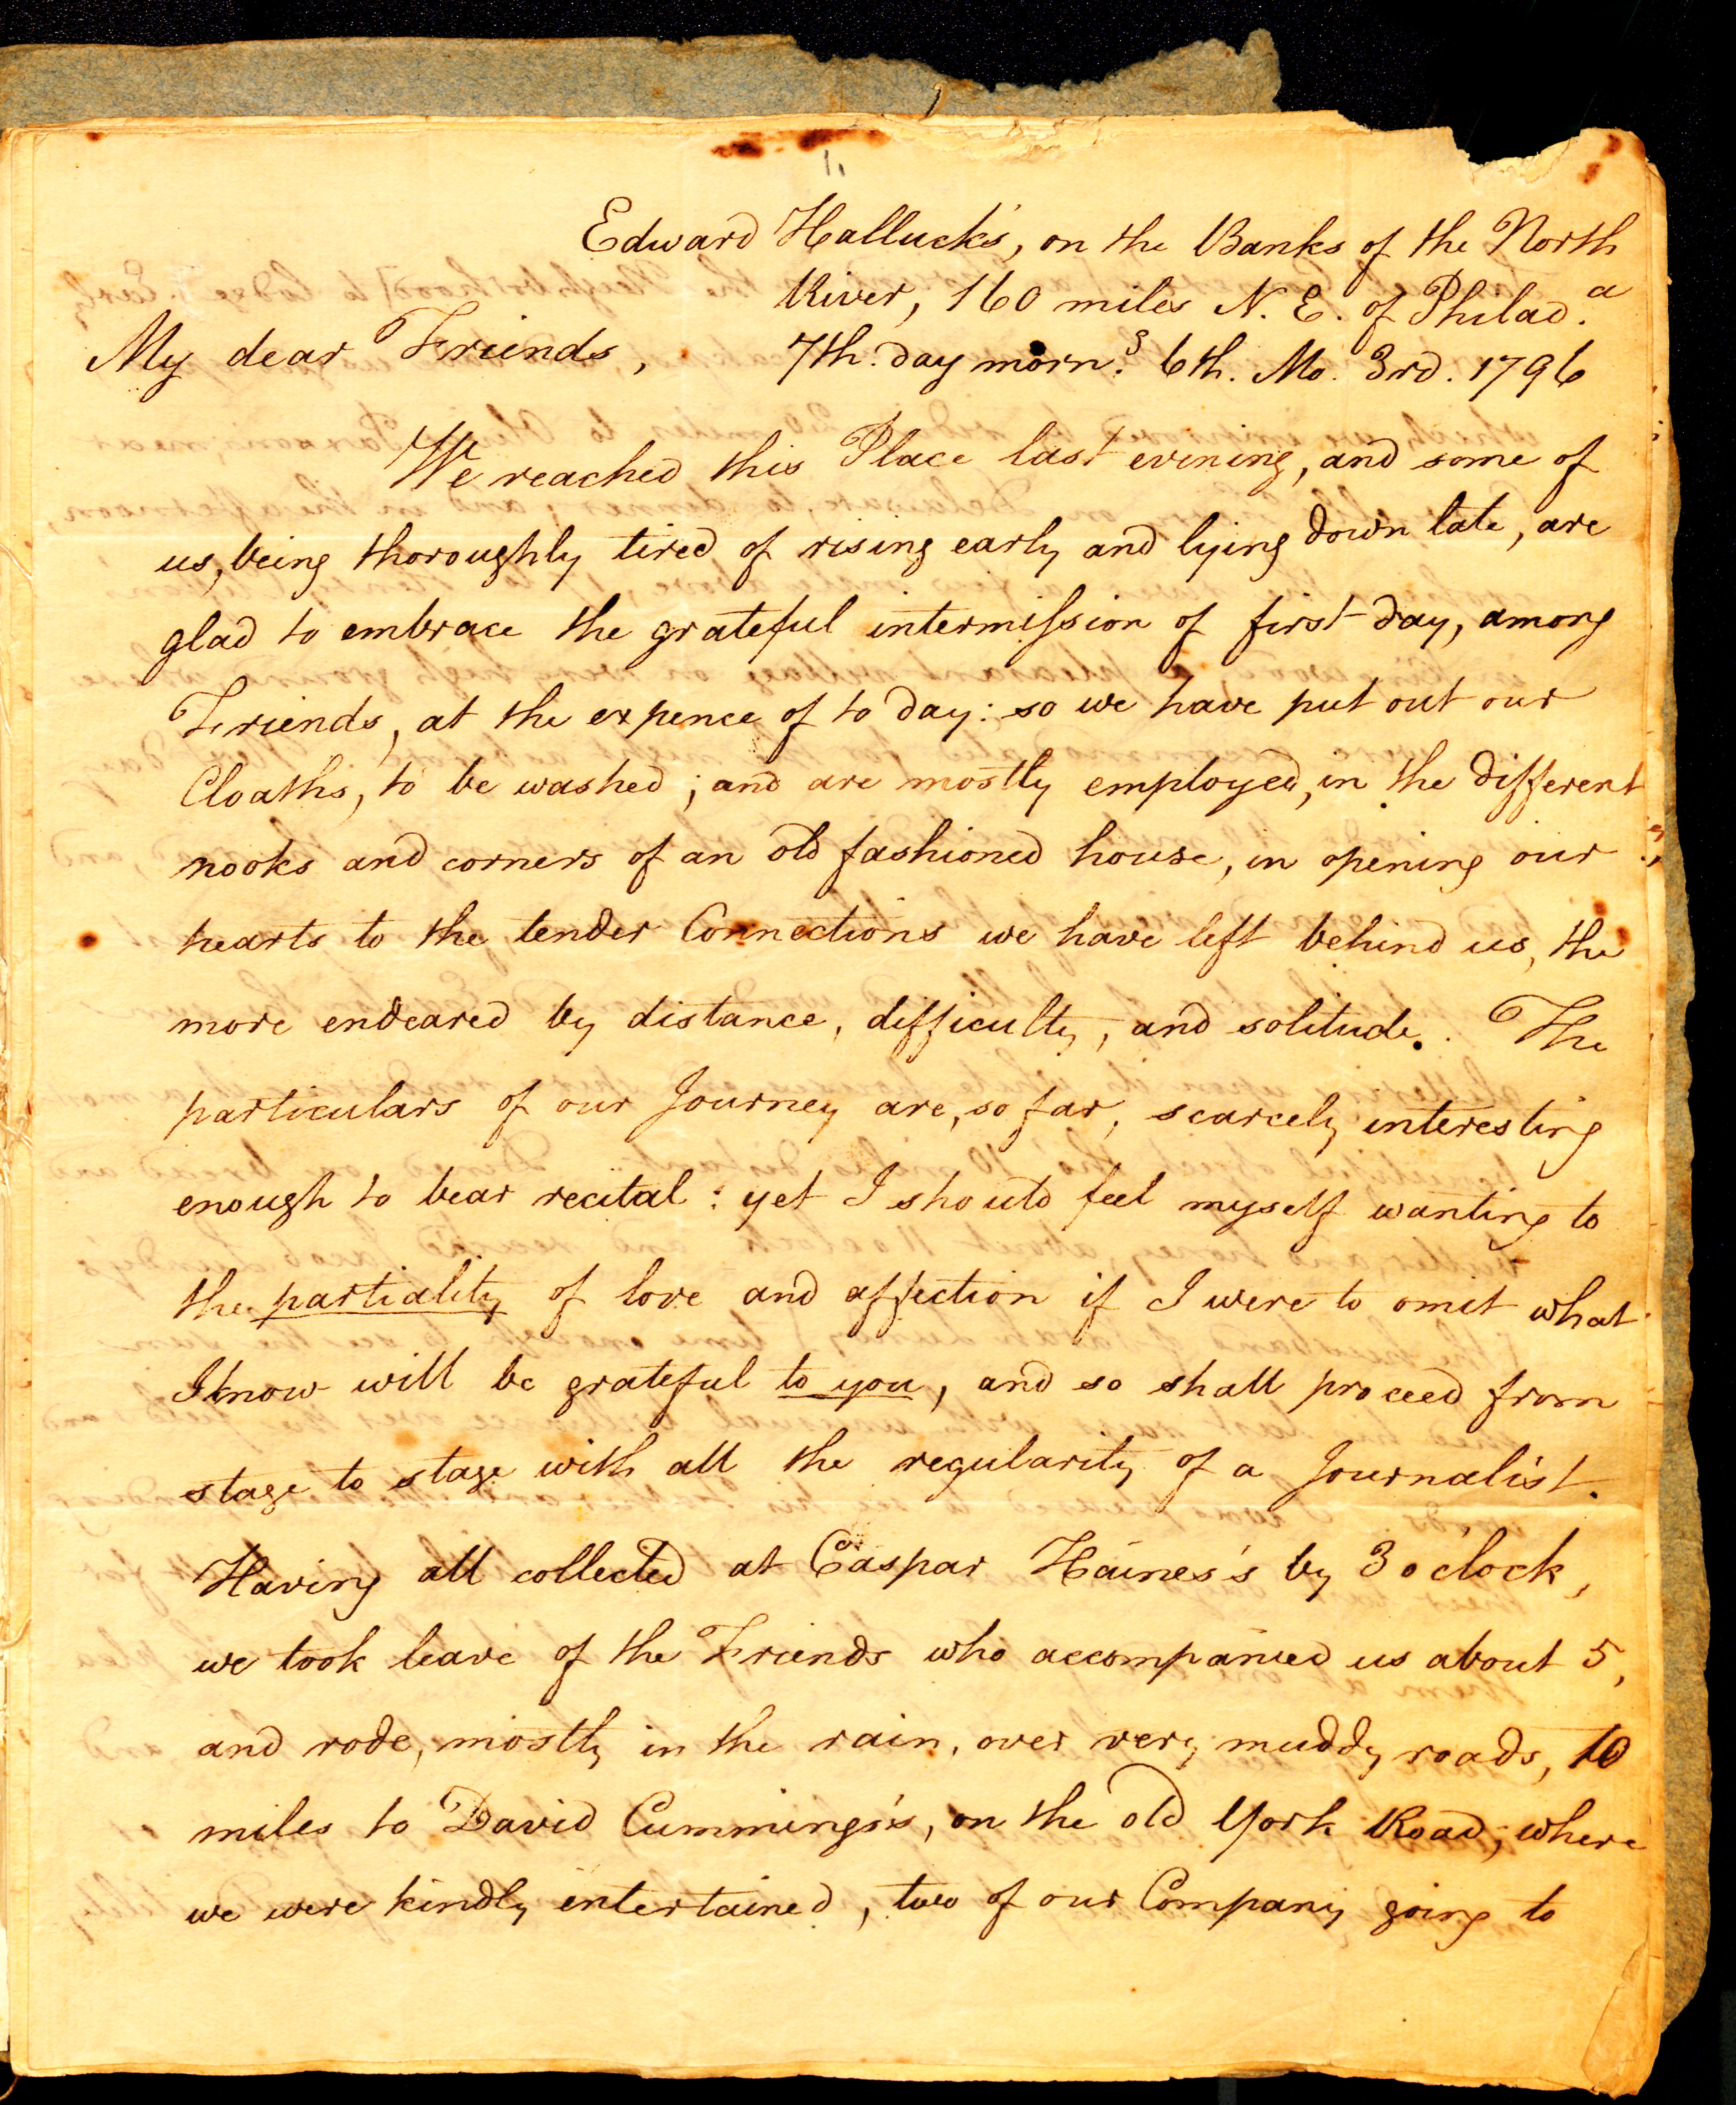 1,
Edward Halluck's, on the Banks of the North
River, 160 miles N. E. of Philad.a
My dear Friends, 7th. day morn.g 6th. Mo. 3rd. 1796
We reached this Place last evening, and some of
us, being thoroughly tired of rising early and lying down late, are
glad to embrace the grateful intermiſsion of first-day, among
Friends, at the expence of to day: so we have put out our
Cloaths, to be washed; and are mostly employed, in the different
nooks and corners of an old fashioned house, in opening our
hearts to the tender Connections we have left behind us, the
more endeared by distance, difficulty, and solitude. The
particulars of our Journey are, so far, scarcely interesting
enough to bear recital: yet I should feel myself wanting to
the partiality of love and affection if I were to omit what
I know will be grateful to you, and so shall proceed from
stage to stage with all the regularity of a Journalist.
Having all collected at Caspar Haines's by 3 o'clock,
we took leave of the Friends who accompanied us about 5,
and rode, mostly in the rain, over very muddy roads, 10
miles to David Cummings's, on the old York Road; where
we were kindly entertained, two of our Company going to